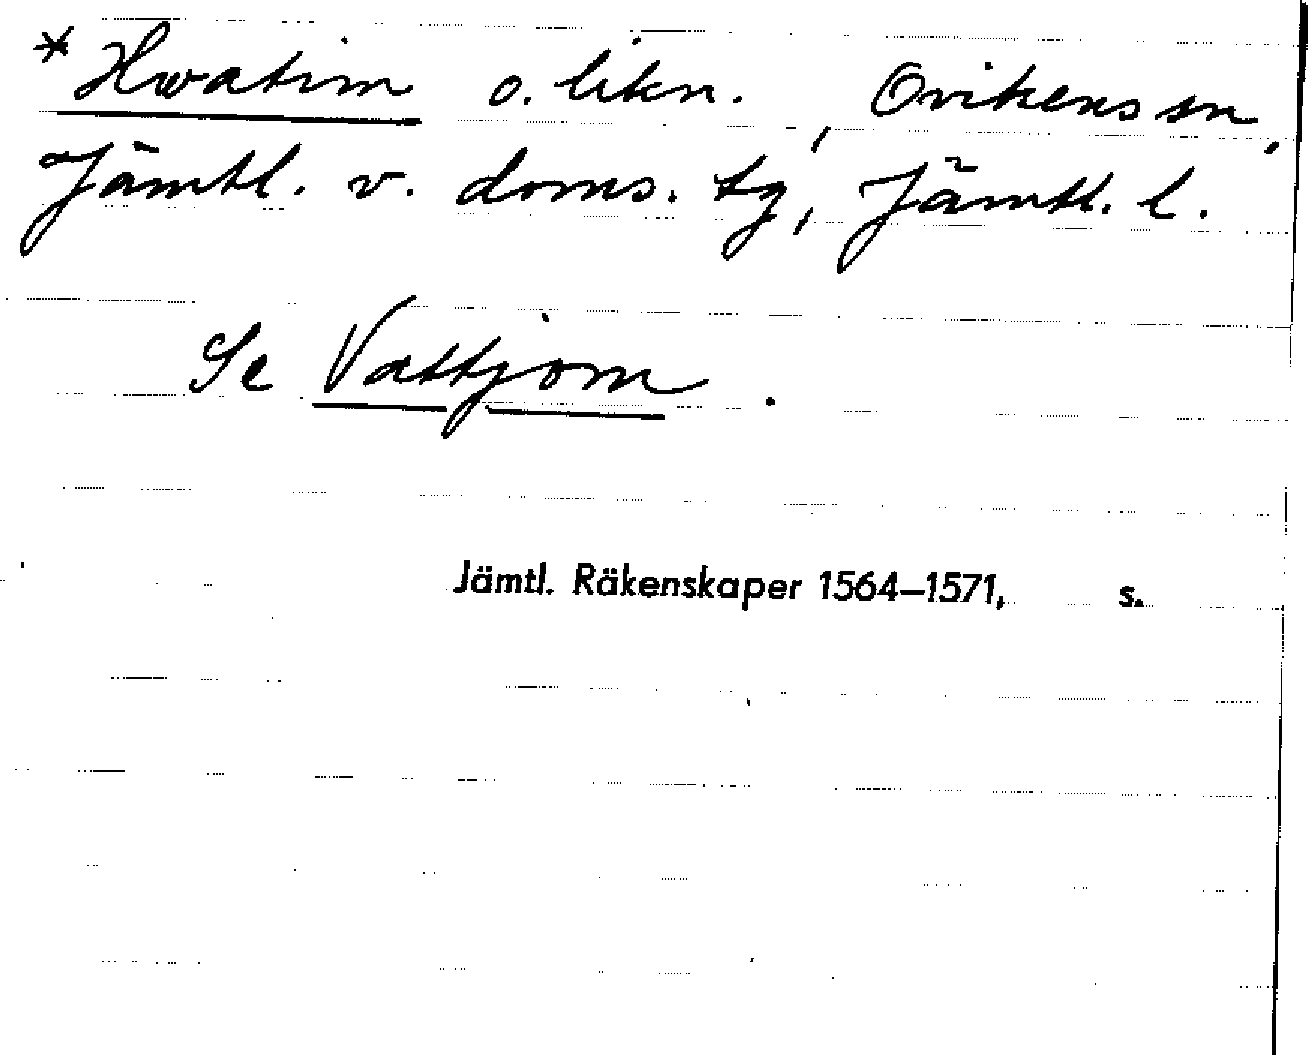 * Hwatim o. likn., Ovikens sn,
Jämtl. v. doms. tg, Jämtl. l.
Se Vattjom.
Jämtl. Räkenskaper 1564–1571, s.